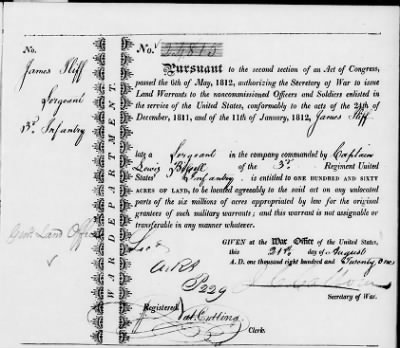 No.
James Iliff
Sergeant
Infantry
WAR DEPARTMENT.
No.
Pursuant to the second section of an Act of Congress,
passed the 6th of May, 1812, authorizing the Secretary of War to issue
Land Warrants to the noncommissioned Officers and Soldiers enlisted in
the service of the United States, conformably to the acts of the 24th of
December, 1811, and of the 11th of January, 1812, James Iliff
late a Sergeant in the company commanded by Captain
Lewis of the 3d Regiment United
States' Infantry, is entitled to ONE HUNDRED AND SIXTY
ACRES OF LAND, to be located agreeably to the said act on any unlocated
parts of the six millions of acres appropriated by law for the original
grantees of such military warrants; and this warrant is not assignable or
transferable in any manner whatever.
Land Office
GIVEN at the War Office of the United States,
this 21st day of August
A. D. one thousand eight hundred and Twenty One
ARK
P 229
J. C. Calhoun
Secretary of War.
Registered Nat. Cutting
Clerk.